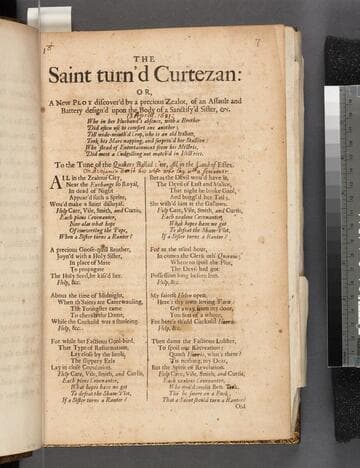 7
THE
Saint turn'd Curtezan:
OR,
A New PLOT discover'd by a precious Zealot, of an Assault and
Battery design'd upon the Body of a Sanctify'd Sister, &c.
Who in her Husband's absence, with a Brother
Did often use to comfort one another,
Till wide-mouth'd Crop, who is an old Italian,
Took his Mare napping, and surpriz'd her Stallion:
Who 'stead of Entertainment from his Mistris,
Did meet a Cudgelling not matcht in Histories.
To the Tune of the Quakers Ballad: or, All in the Land of Essex.
ALL in the Zealous City,
Near the Exchange so Royal,
In dead of Night
Appear'd such a Sprite,
Wou'd make a Saint disloyal.
Help Care, Vile, Smith, and Curtis,
Each pious Covenanter,
Now alas what hope
Of converting the Pope,
When a Sister turns a Ranter?
A precious Brother,
joyn'd with a Holy Sister,
In place of Mate
To propagate
The Holy Seed, he kiss'd her.
Help, &c.
About the time of Midnight,
When th' Saints are Caterwauling,
The Youngster came
To the Dame,
While the Cuckold was a
Help, &c.
For while her Factious Good-bird,
That Type of Reformation,
Lay close by the
The slippery Eels
Lay in close
Help Care, Vile, Smith, and Curtis,
Each pious Covenanter,
What hopes have we got
To defeat the Sham-Plot,
If a Sister turns a Ranter?
But as the Devil wou'd have it,
The Devil of Lust and Malice,
That night he broke Goal,
And bugger'd her Tail,
She wish'd him at the Gallows.
Help Care, Vile, Smith, and Curtis,
Each zealous Covenanter,
What hopes have we got
To defeat the Sham-Plot,
If a Sister turns a Ranter?
For at the usual hour,
In comes the Clerk
Where to spoil the Plot,
The Devil had got
Possession long before him.
Help, &c.
My fairest open,
Here's thy own loving
Get away from my door,
You Son of a whore,
For here's th'old Cuckold
Help, &c.
Then damn the Factious Lubber,
To spoil our Recreation:
Quoth what's there?
'Tis nothing, my Dear,
But the Spirit of Revelation.
Help Care, Vile, Smith, and Curtis,
Each zealous Covenanter,
Who wou'd credit Book,
Tho' he swore on a Book,
That a Saint shou'd turn a Ranter?
Old